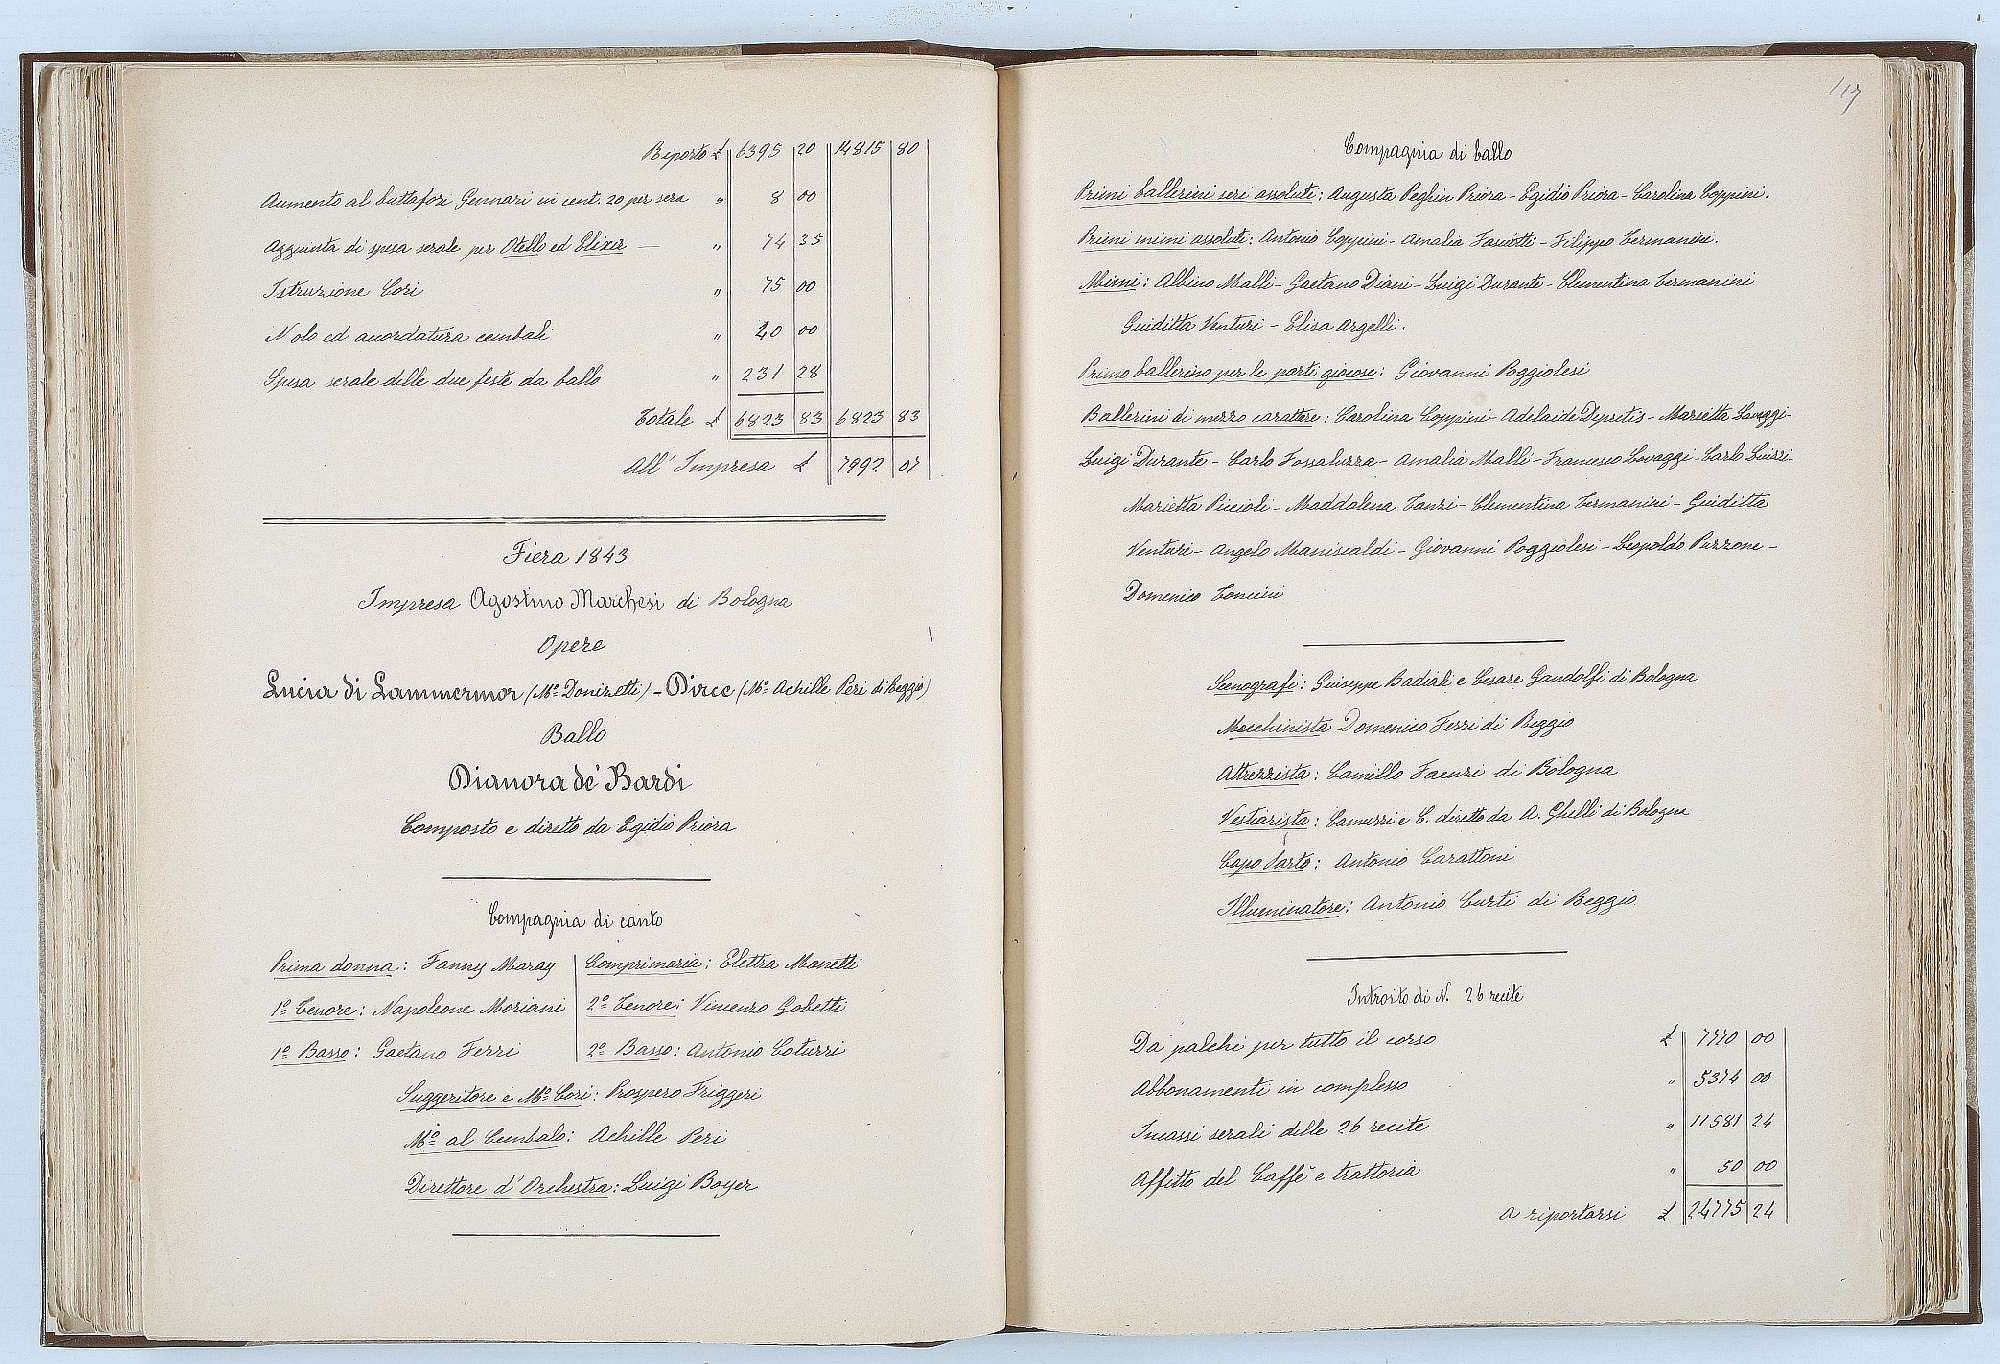 Riporto £ 6395 20 14815 80
Aumento al buttafori Gennari in cent. 20 per sera " 8 00
Aggiunta di spesa serale per Otello ed Elixir — " 74 35
Istruzione Cori " 75 00
Nolo ed accordatura cembali " 40 00
Spesa serale delle due feste da ballo " 231 28
Totale £ 6823 83 6823 83
All' Impresa £ 7992 07
Fiera 1843
Impresa Agostino Marchesi di Bologna
Opere
Lucia di Lammermor (Mo. Donizetti) - Dirce (Mo. Achille Peri di Reggio)
Ballo
Dianora de' Bardi
Composto e diretto da Egidio Priora
Compagnia di canto
Prima donna: Fanny Maray
1o Tenore: Napoleone Moriani
1o Basso: Gaetano Ferri
Comprimaria: Elettra Monetti
2o Tenore: Vincenzo Gobetti
2o Basso: Antonio Coturri
Suggeritore e Mo. Cori: Prospero Friggeri
Mo al Cembalo: Achille Peri
Direttore d'Orchestra: Luigi Boyer
117
Compagnia di ballo
Primi ballerini seri assoluti: Augusta Peghin Priora - Egidio Priora - Carolina Coppini.
Primi mimi assoluti: Antonio Coppini - Amalia Fasciotti - Filippo Termanini.
Mimi: Albino Malli - Gaetano Diani - Luigi Durante - Clementina Termanini
Guiditta Venturi - Elisa Argelli.
Primo ballerino per le parti giocose: Giovanni Poggiolesi
Ballerini di mezzo carattere: Carolina Coppini - Adelaide Depretis - Marietta Lovaggi -
Luigi Durante - Carlo Fossaluzza - Amalia Malli - Francesco Lovaggi - Carlo
Marietta Piccioli - Maddalena Tanzi - Clementina Termanini - Guiditta
Venturi - Angelo Maniscaldi - Giovanni Poggiolesi - Leopoldo Puzzone -
Domenico Concini
Scenografi: Guiseppe Badiali e Cesare Gandolfi di Bologna
Macchinista Domenico Ferri di Reggio
Attrezzista: Camillo Faenzi di Bologna
Vestiarista: Camurri e C. diretto da A. Ghelli di Bologna
Capo Sarto: Antonio Carattoni
Illuminatore: Antonio Curti di Reggio
Introito di N. 26 recite
Da palchi per tutto il corso £ 7770 00
Abbonamenti in complesso " 5374 00
Incassi serali delle 26 recite " 11581 24
Affitto del Caffè e trattoria " 50 00
A riportarsi £ 24775 24